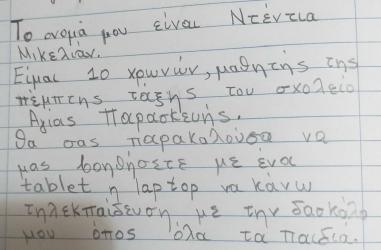 Το ονομά μου είναι Ντέντια
Μικελιάν.
Είμαι 10 χρωνών, μαθητής της
πέμπτης τάξης του σχολείο
Αγίας Παρασκευής.
θα σας παρακαλούσα να
μας βοηθήσετε με ένα
tablet η laptop να κάνω
τηλεκπαίδευση με την δασκάλα
μου όπος όλα τα παιδιά.